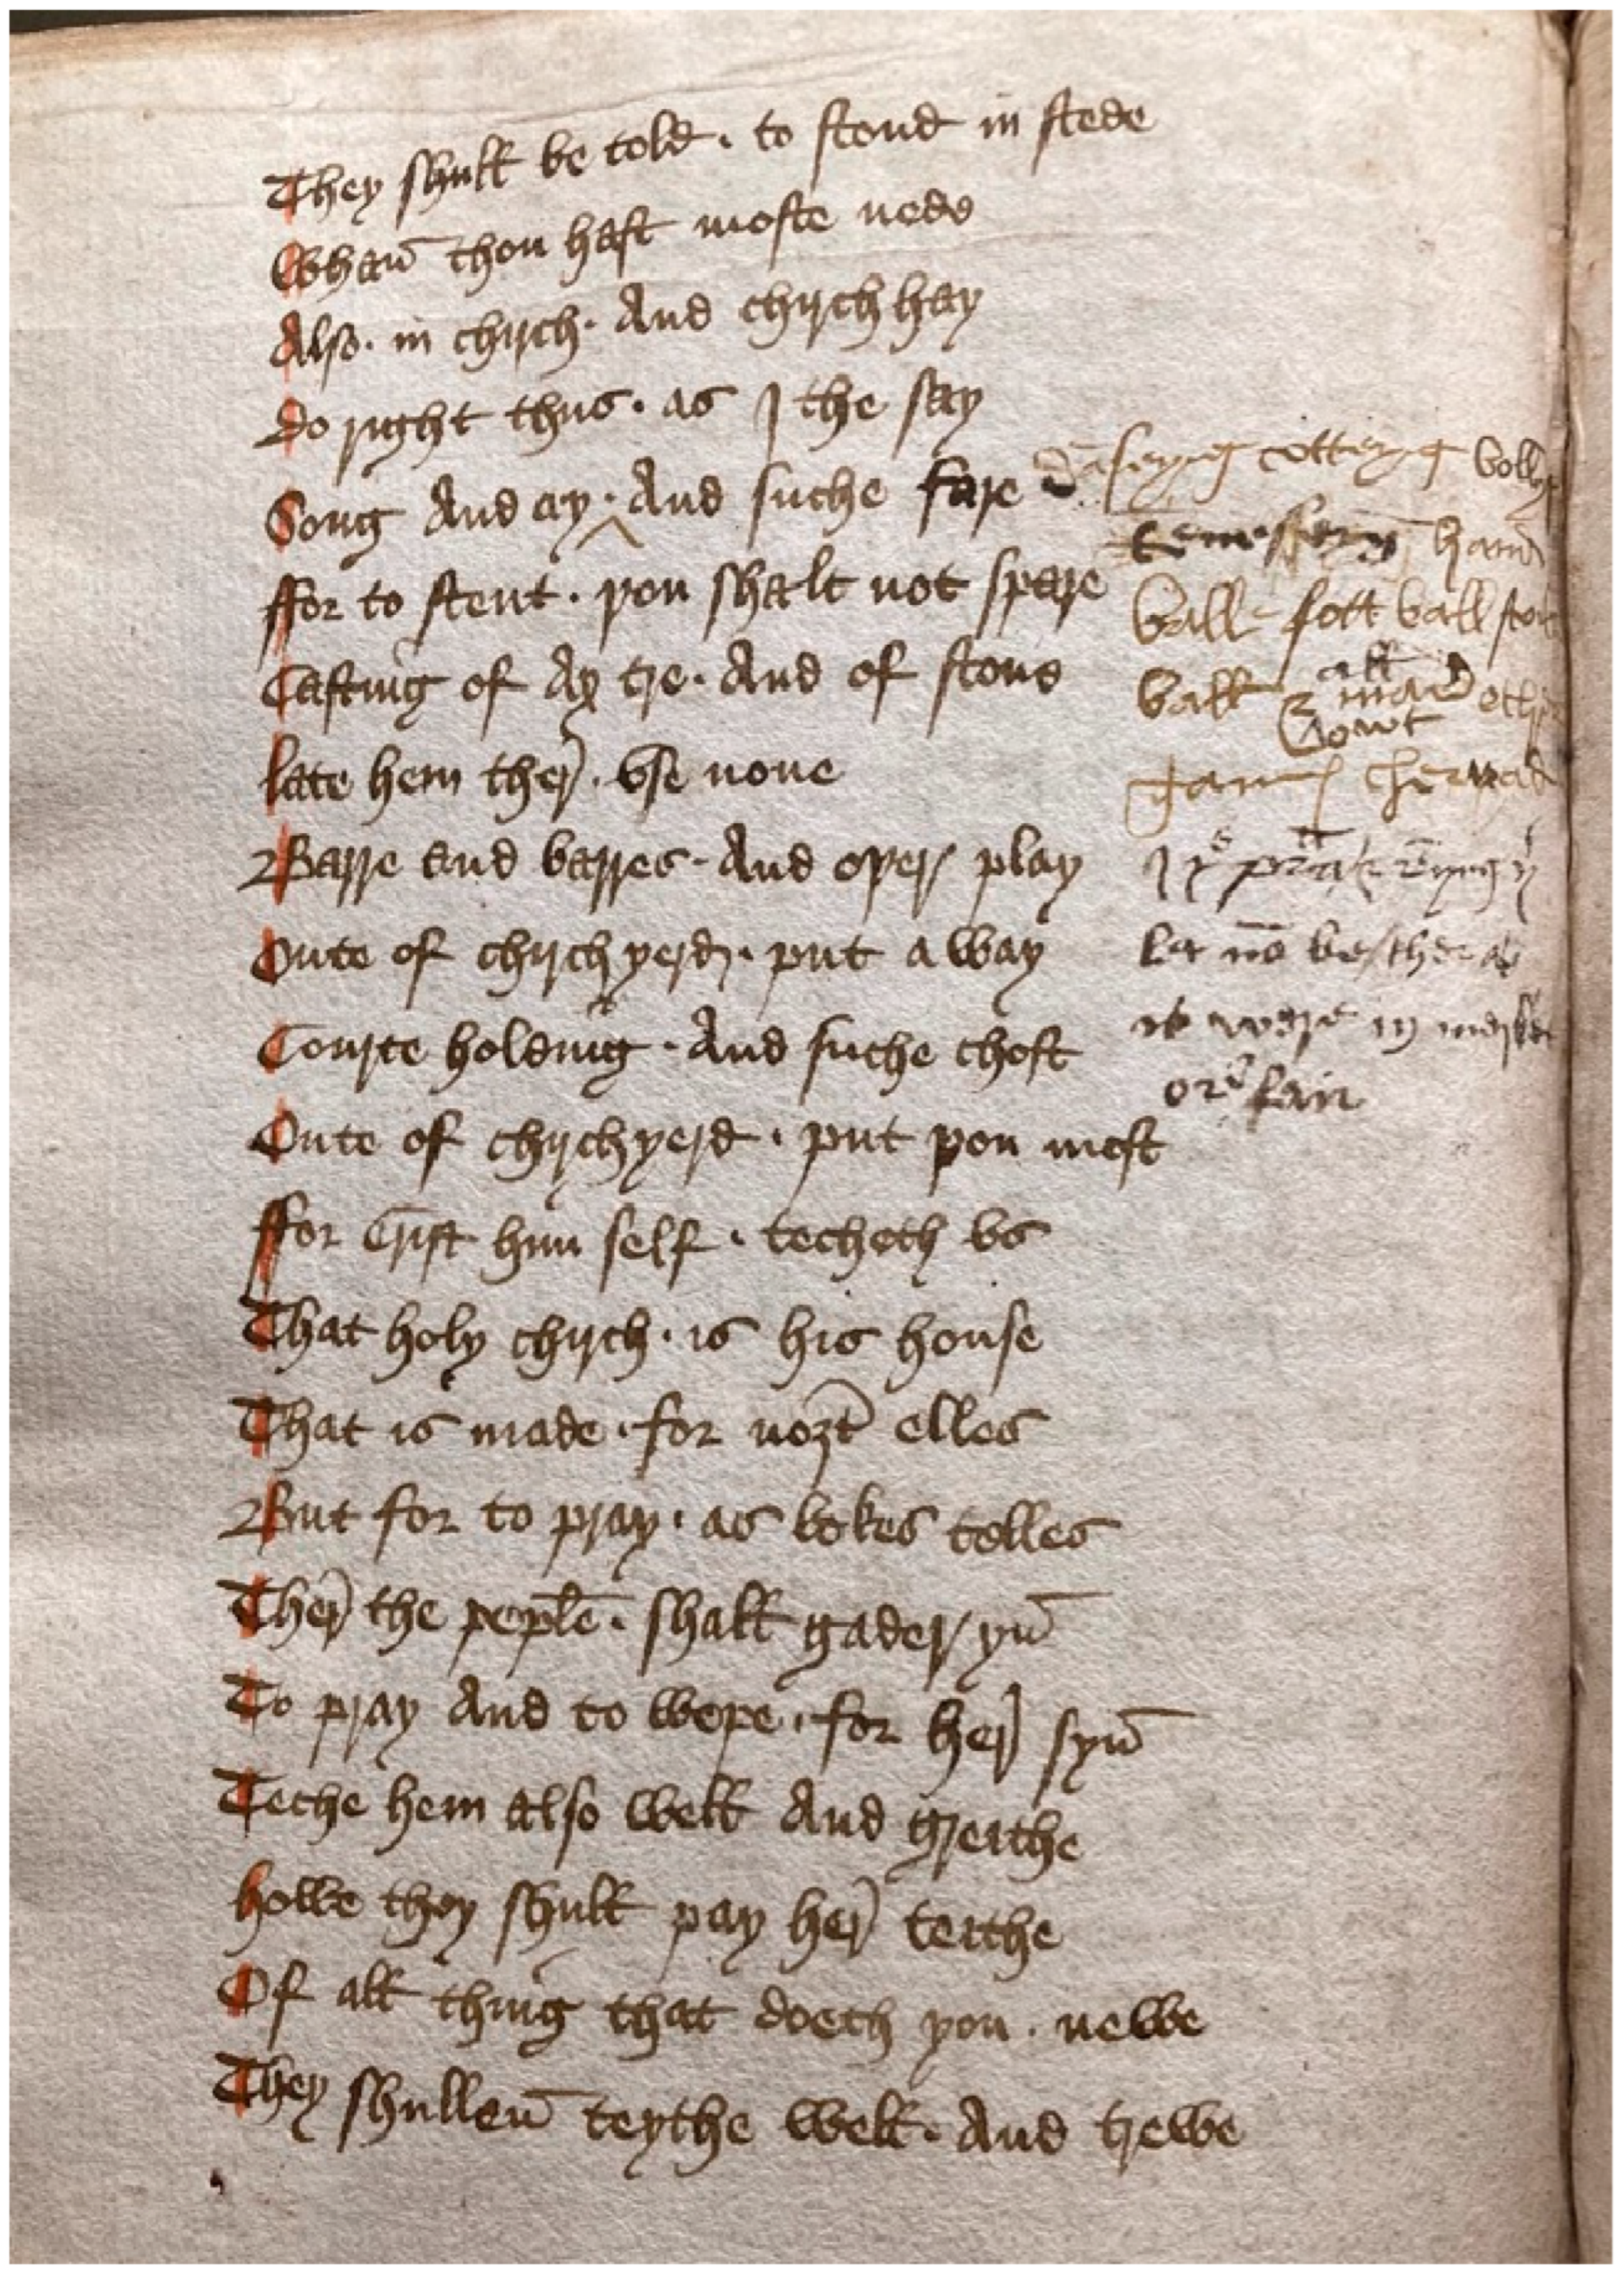 They shull be told · to stond in stede
Whan̄ thou hast moste nede
Also · in chirch · And chirch hay
Do right thus · as I the say
Song And cry · And suche fare
ffor to stent · þou shalt not spare
Casting of Ax tre · And of stone
late hem ther̄ · vse none
Barre and barres · And oþer play
Oute of chirch yerd · put a way
Courte holding · And suche chost
Oute of chirchyerd · put þou most
ffor Crist him self · techeth vs
That holy chirch · is his house
That is made · for noȝt elles
But for to pray · as bokes telles
Ther̄ the peplē · shall gader yn̄
To pray And to wepe · for her̄ syn̄
Teche hem also well And greithe
howe they shull pay her̄ teithe
Of all thing that doeth þou · newe
They shullen̄ teythe well · And trewe
dāseyng cotteyng bollyng
hand
ball fott ball stou
ball & all manͬ other
gam̄ cherchȝard
let no be ther as
it were in merket
or fair